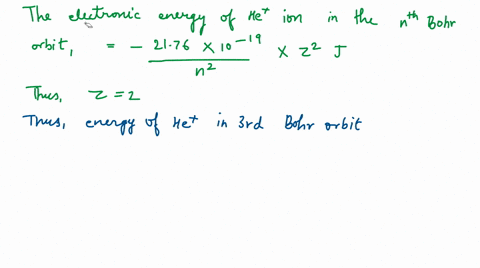 The electronic energy of He⁺ ion in the nᵗʰ Bohr
orbit, = - 21.76 × 10⁻¹⁹ / n² × Z² J
Thus, Z = 2
Thus, energy of He⁺ in 3rd Bohr orbit